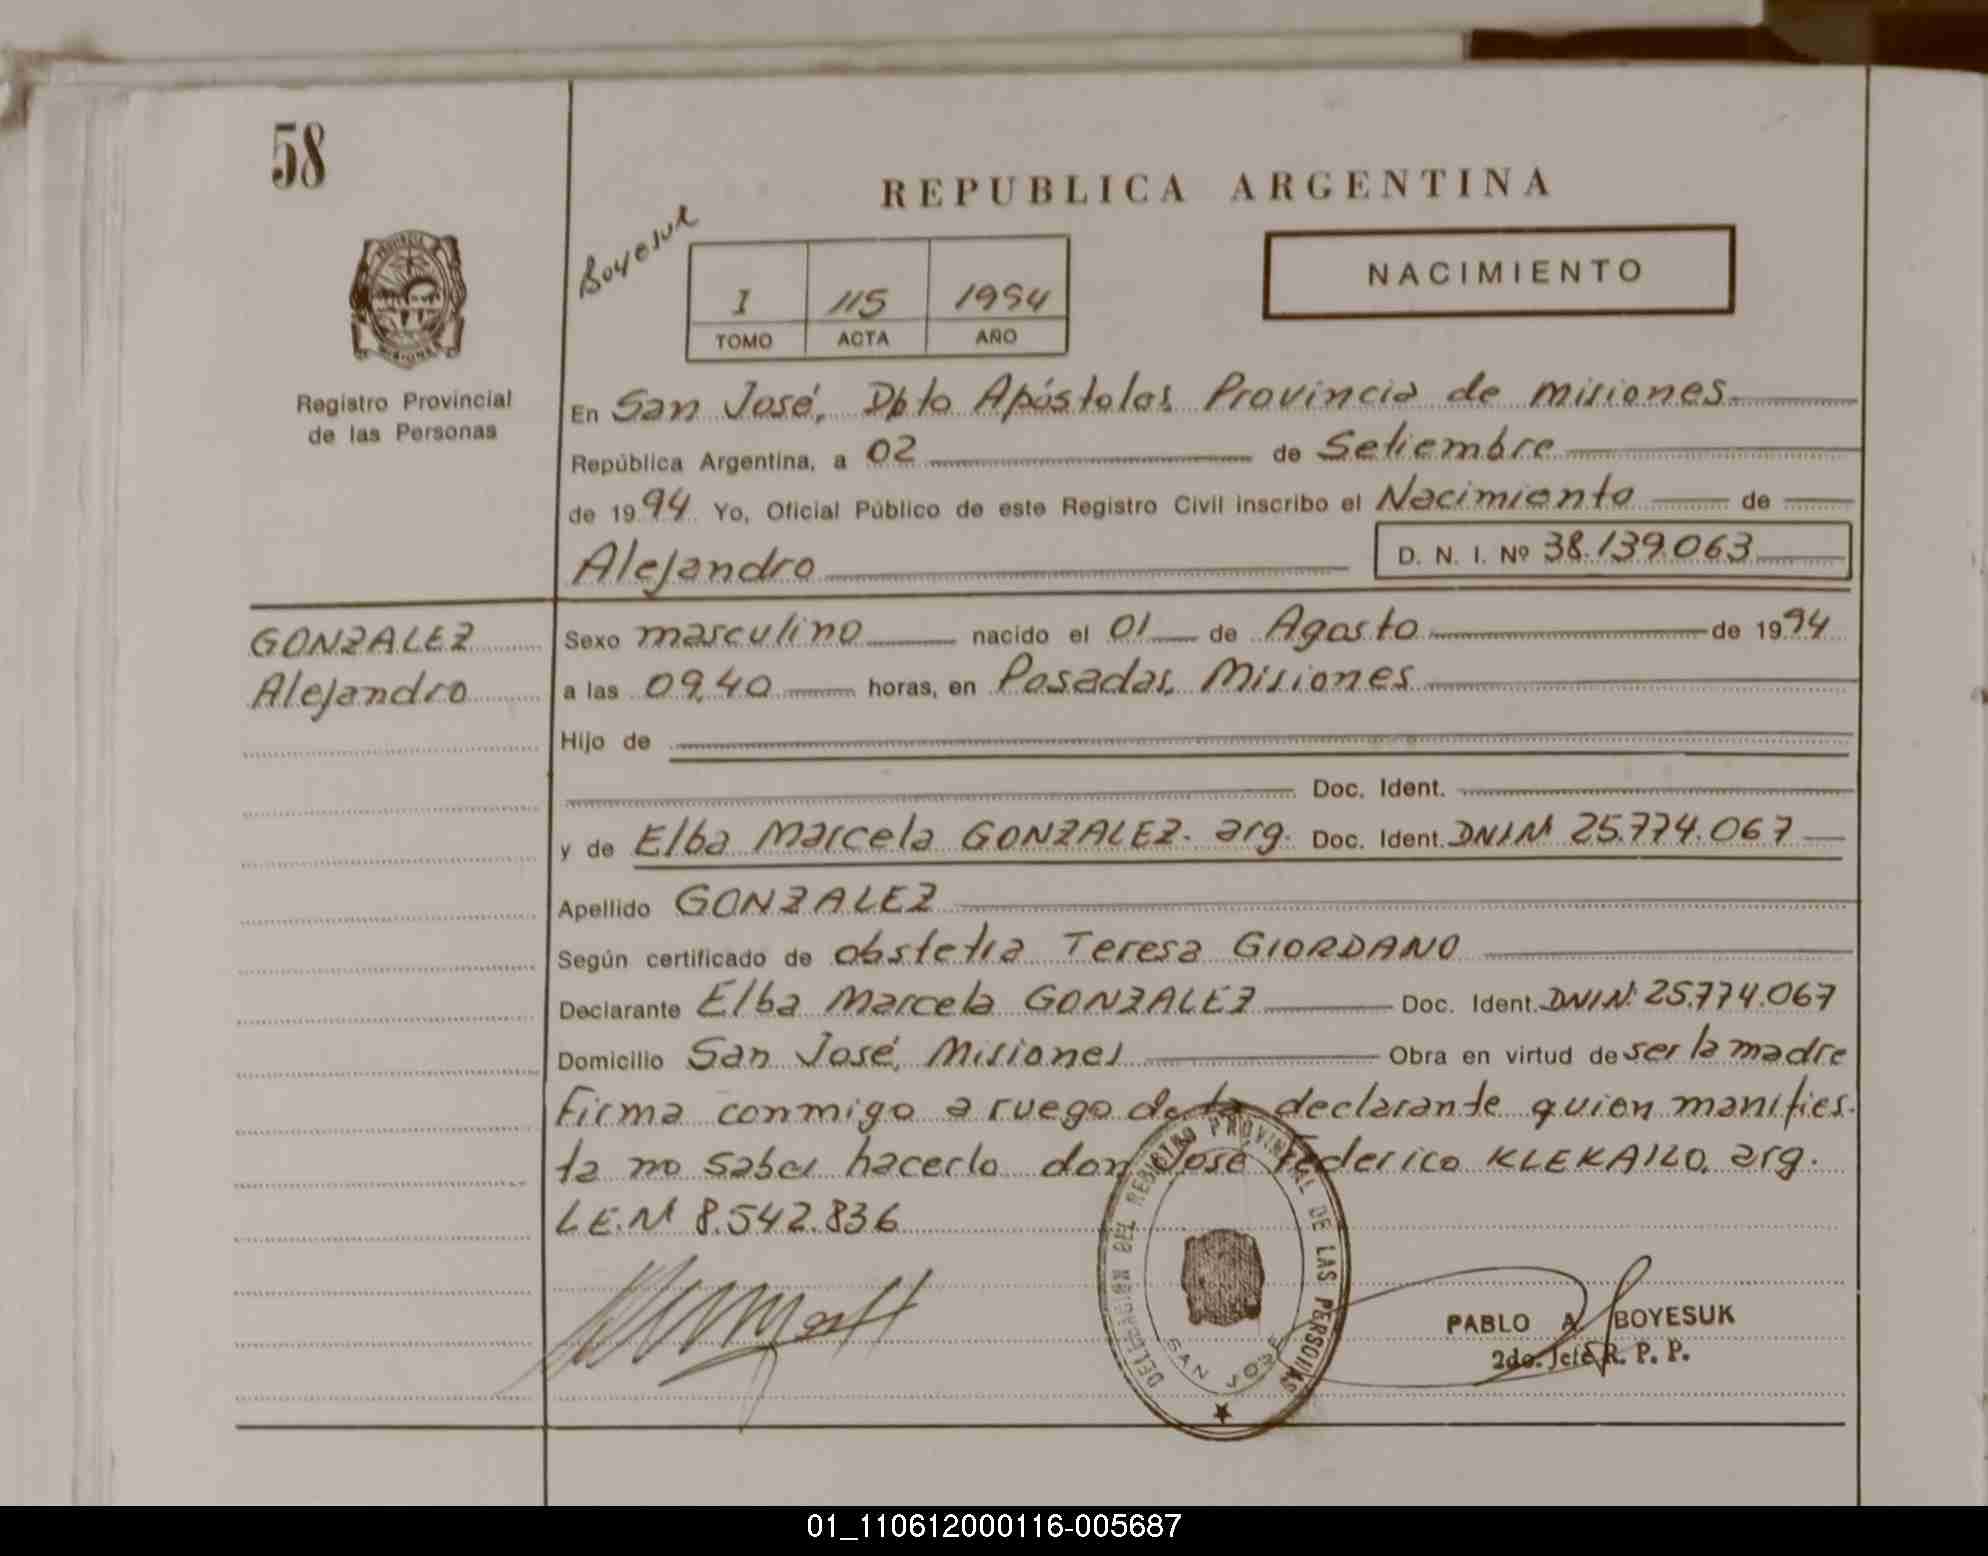 58
REPUBLICA ARGENTINA
Boyesuk
NACIMIENTO
I 115 1994
TOMO ACTA AÑO
Registro Provincial
de las Personas
En San José, Dpto Apóstoles, Provincia de Misiones
República Argentina, a 02 de Setiembre
de 1994 Yo, Oficial Público de este Registro Civil inscribo el Nacimiento de
Alejandro D. N. I. Nº 38.139.063
GONZALEZ
Alejandro
Sexo masculino nacido el 01 de Agosto de 1994
a las 09,40 horas, en Posadas, Misiones
Hijo de
Doc. Ident.
y de Elba Marcela GONZALEZ. arg. Doc. Ident. DNI Nº 25.774.067
Apellido GONZALEZ
Según certificado de obstetra Teresa GIORDANO
Declarante Elba Marcela GONZALEZ Doc. Ident. DNI Nº 25.774.067
Domicilio San José, Misiones Obra en virtud de ser la madre
Firma conmigo a ruego de la declarante quien manifies-
ta no saber hacerlo don José Federico KLEKAILO, arg.
L.E. Nº 8.542.836
DELEGACION DEL REGISTRO PROVINCIAL DE LAS PERSONAS
SAN JOSE
PABLO A. BOYESUK
2do. Jefe R. P. P.
01_110612000116-005687